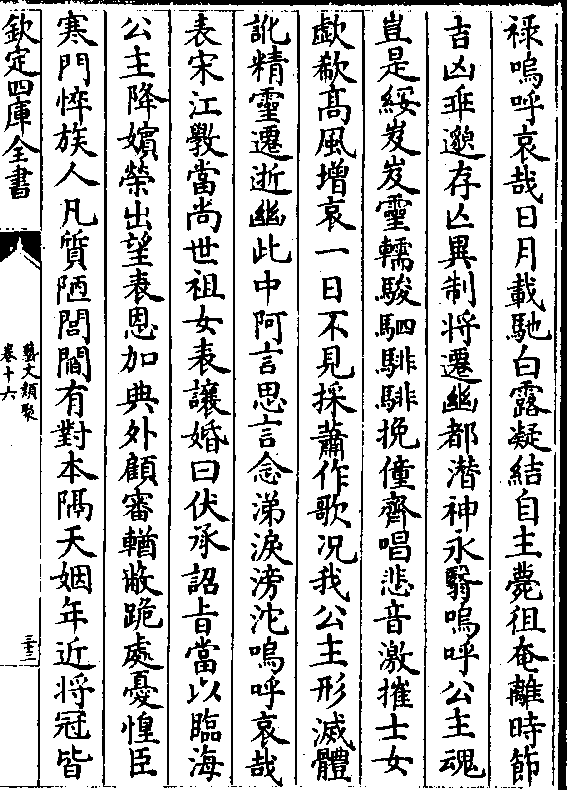 祿嗚呼哀哉日月載馳白露凝結自主薨徂奄離時節
吉凶乖邈存亾異制将遷幽都潜神永翳嗚呼公主魂
豈是綏岌岌靈轜駿駟騑騑挽僮齊唱悲音激摧士女
歔欷髙風增哀一日不見採蕭作歌况我公主形滅體
訛精靈遷逝幽此中阿言思言念涕淚滂沱嗚呼哀哉
表宋江斆當尚世祖女表讓婚曰伏承詔㫖當以臨海
公主降嬪榮出望表恩加典外顧審輶敝跪處憂惶臣
寒門悴族人凡質陋閭閻有對本隔天姻年近将冠皆
欽定四庫全書
藝文類聚
卷十六
三十二